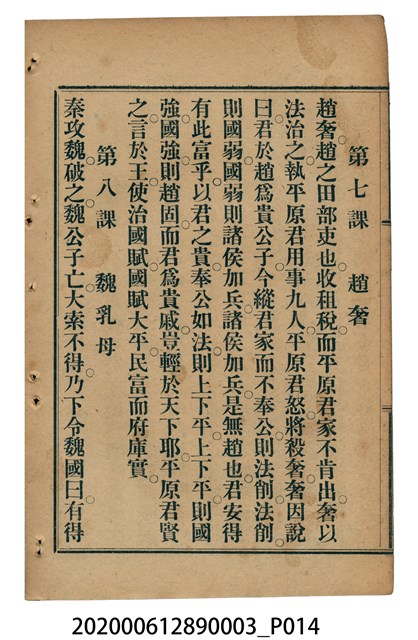 第七課 趙奢
趙奢趙之田部吏也收租稅而平原君家不肯出奢以
法治之執平原君用事九人平原君怒將殺奢奢因說
曰君於趙爲貴公子今縱君家而不奉公則法削法削
則國弱國弱則諸侯加兵諸侯加兵是無趙也君安得
有此富乎以君之貴奉公如法則上下平上下平則國
強國強則趙固而君爲貴戚豈輕於天下耶平原君賢
之言於王使治國賦國賦大平民富而府庫實
第八課 魏乳母
秦攻魏破之魏公子亡大索不得乃下令魏國曰有得
202000612890003_P014